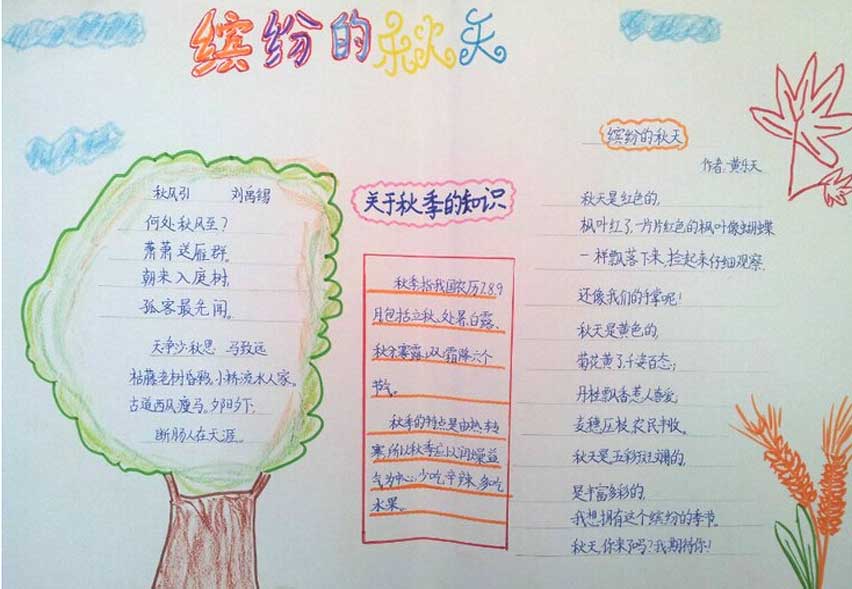 缤纷的秋天
秋风引 刘禹锡
何处秋风至?
萧萧送雁群。
朝来入庭树,
孤客最先闻。
天净沙秋思 马致远
枯藤老树昏鸦,小桥流水人家。
古道西风瘦马。夕阳夕下,
断肠人在天涯。
关于秋季的知识
秋季指我国农历7.8.9
月包括立秋、处暑、白露、
秋分寒露,双霜降六个
节气。
秋季的特点是由热转
寒,所以秋季应以润燥益
气为中心,少吃辛辣,多吃
水果。
缤纷的秋天
作者:黄乐天
秋天是红色的,
枫叶红了,一片片红色的枫叶像蝴蝶
一样飘落下来,捡起来仔细观察,
还像我们的手掌呢!
秋天是黄色的,
菊花黄了,千姿百态;
丹桂飘香惹人喜爱;
麦穗压枝,农民丰收。
秋天是五彩斑斓的,
是丰富多彩的,
我想拥有这个缤纷的季节。
秋天,你来了吗?我期待你!